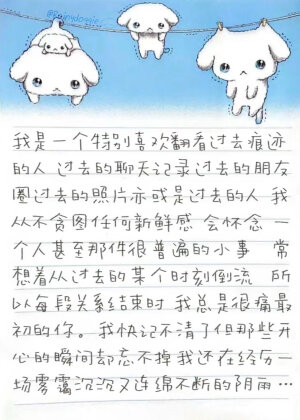 @Rainydoggies
我是一个特别喜欢翻看过去痕迹
的人 过去的聊天记录过去的朋友
圈过去的照片亦或是过去的人 我
从不贪图任何新鲜感 会怀念一
个人甚至那件很普遍的小事 常
想着从过去的某个时刻倒流 所
以每段关系结束时 我总是很痛最
初的你。我快记不清了但那些开
心的瞬间却忘不掉我还在经历一
场雾霭沉沉又连绵不断的阴雨…